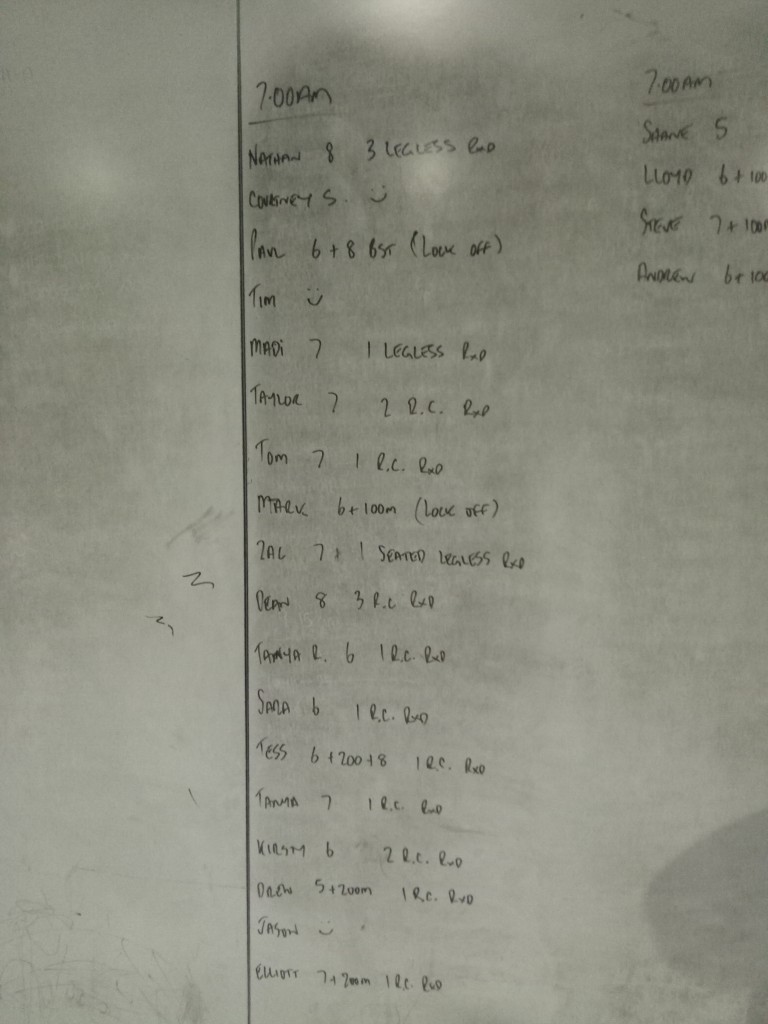 7.00AM
NATHAN 8 3 LEGLESS RxD
COURTNEY S. :)
PAUL 6+8 BST (LOCK OFF)
TIM :)
MADI 7 1 LEGLESS RxD
TAYLOR 7 2 R.C. RxD
TOM 7 1 R.C. RxD
MARK 6+100m (LOCK OFF)
ZAC 7+1 SEATED LEGLESS RxD
DEAN 8 3 R.C RxD
TANYA R. 6 1 R.C. RxD
SARA 6 1 R.C. RxD
TESS 6+200+8 1 R.C. RxD
TANYA 7 1 R.C. RxD
KIRSTY 6 2 R.C. RxD
DREW 5+200m 1 R.C. RxD
JASON :)
ELLIOTT 7+200m 1 R.C. RxD
7.00AM
SHANE 5
LLOYD 6+100
STEVE 7+100m
ANDREW 6+100